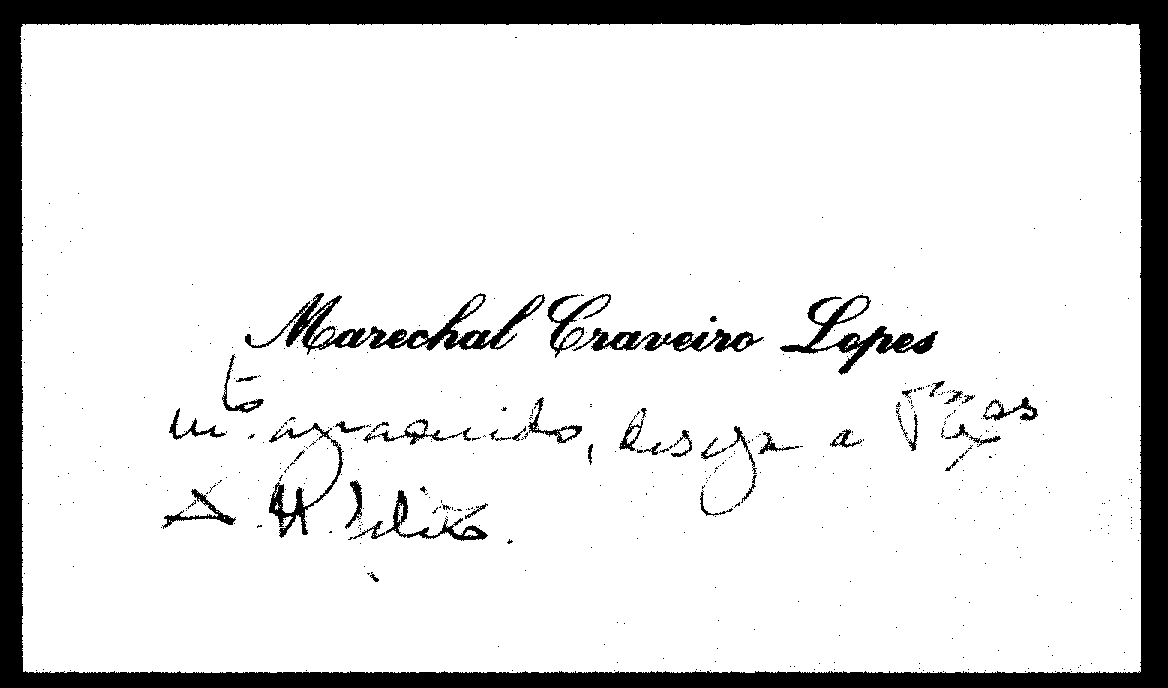 Marechal Craveiro Lopes
mto. agradecido, deseja a V. Exas
A. N. Feliz.